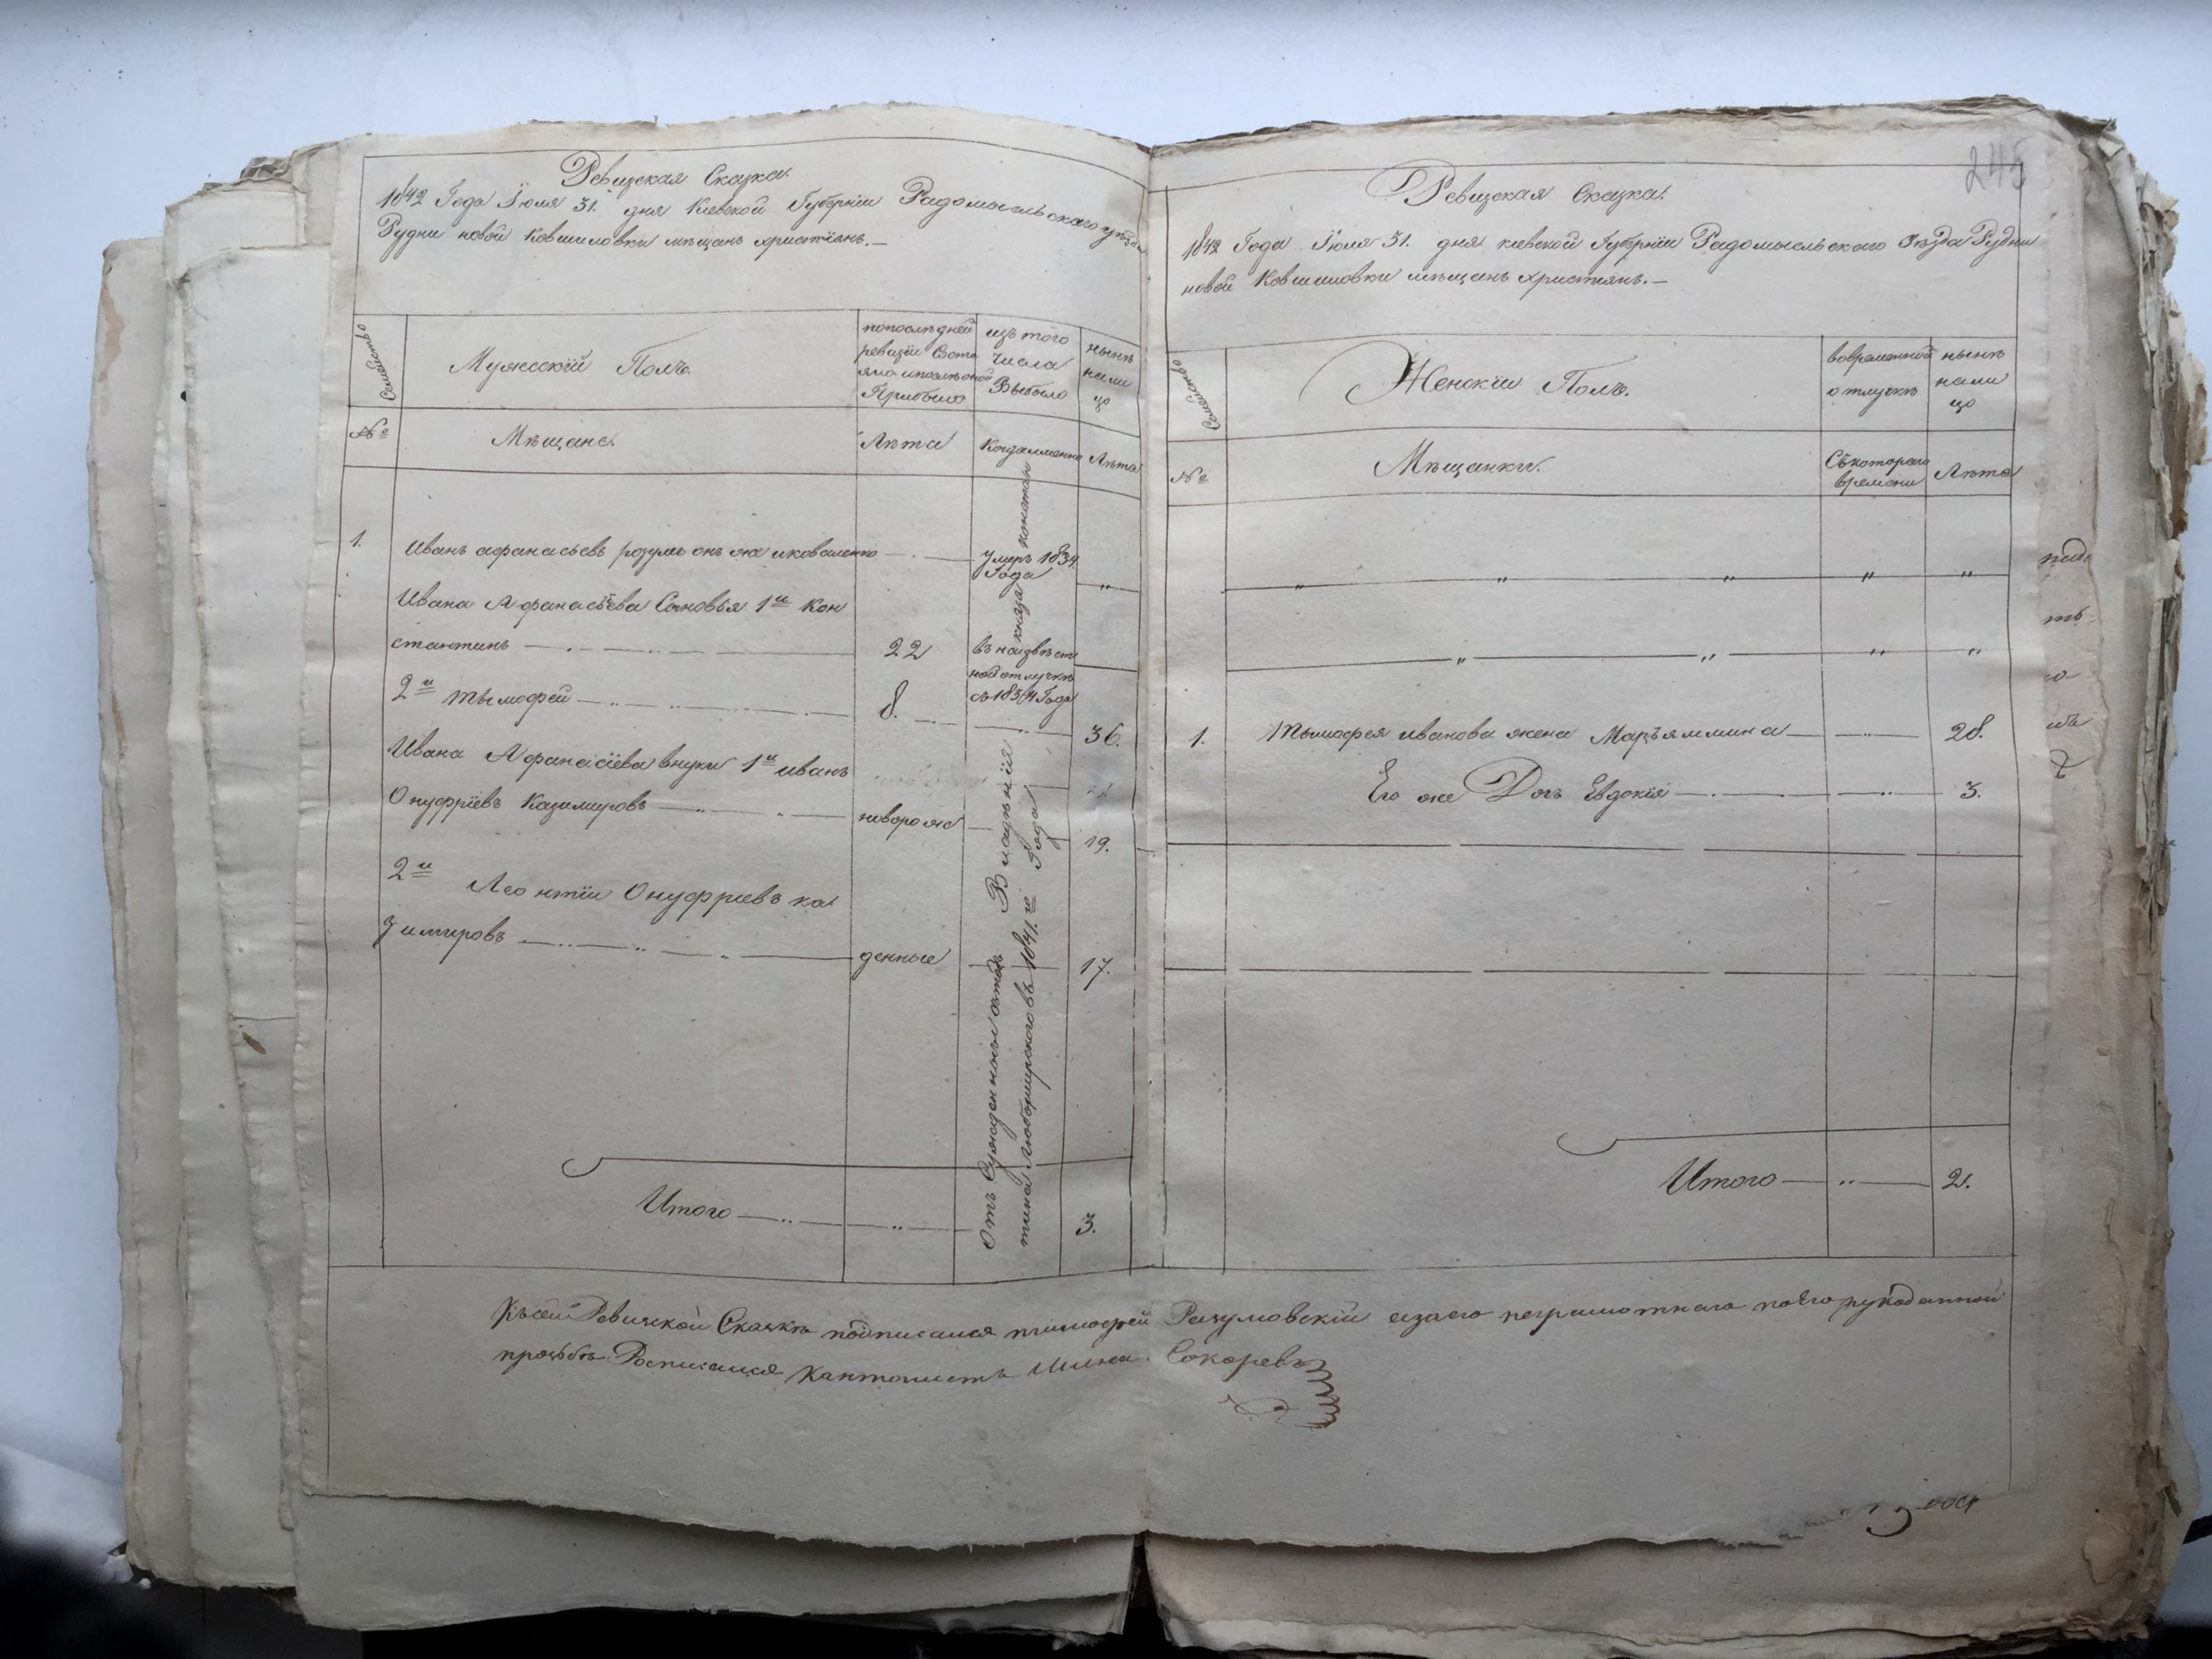 Ревизская Сказка.
1842 Года Іюля 31. дня Кіевской Губерніи Радомысльскаго уѣзда
Рудни новой Ковшиловки мѣщанъ христіянъ.—
Семейство
Мужескій Полъ.
попослѣдней
ревизіи Состо
яло ипослѣ оной
Прибыло
изъ того
числа
Выбыло
нынѣ
нали
цо
№
Мѣщане.
Лѣта
Когда именно
Лѣта
1.
Иванъ афанасьевъ розумъ онъ же иковаленко
умеръ 1834
Года
"
Ивана Афанасіева Сыновья 1й Кон
стантинъ
22
въ неизвѣст
ной отлучкѣ
съ 1834 Года
2й тымофей
8.
36.
Ивана Афанасіева внуки 1й иванъ
Онуфріевъ Казимировъ
новорож
19.
2й Леонтіи Онуфріевъ ка
зимировъ
денные
17.
Отъ Сужденные
Владѣнія князя
Любомирского въ 1841.м Года
Итого
3.
245
Ревизская Сказка.
1842 Года Іюля 31. дня кіевской Губерніи Радомысльского Уезда Рудни
новой Ковшиловки мѣщанъ христіянъ.—
Семейство
Женскіи Полъ.
вовременной
отлучкѣ
нынѣ
нали
цо
№
Мѣщанки.
Съ котораго
времени
Лѣта
" " " " "
" " " "
1. Тымофея иванова жена Маръяммина 28.
Его же Дочь Евдокія 3.
Итого 2.
Къ сей Ревизской Сказкѣ подписался тимофей Разумовскій азаего неграмотнаго поего рукоданной
прозьбѣ Росписался Кантонистъ Сокоревъ